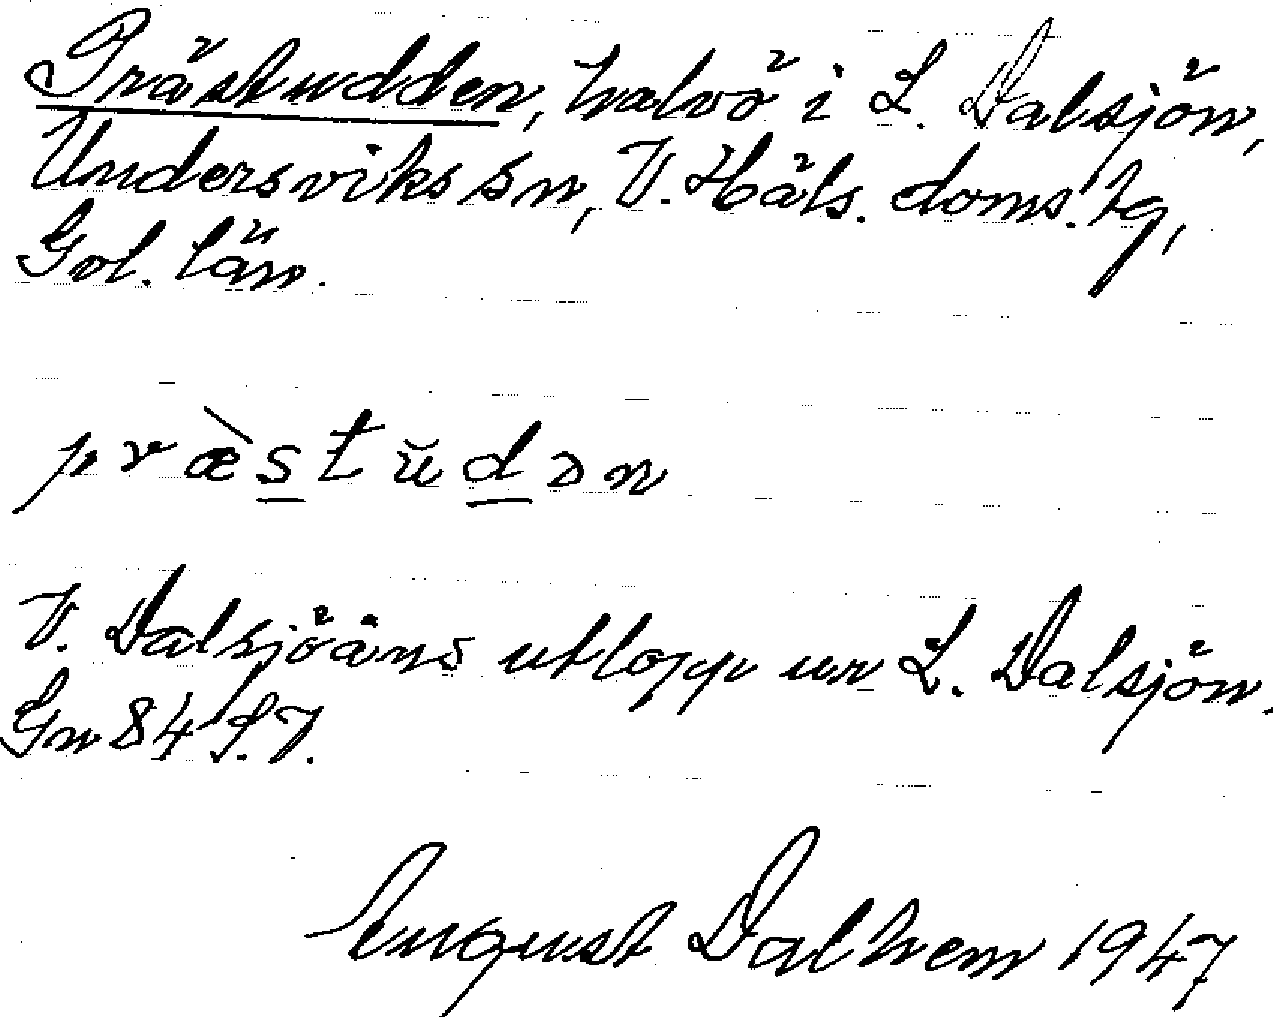 Prästudden, halvö i L. Dalsjön,
Undersviks sn, V. Häls. doms. tg,
Gvl. län.
præ̀stŭdən
V. Dalsjöåns utlopp ur L. Dalsjön.
Gn 84 S.V.
August Dalhem 1947